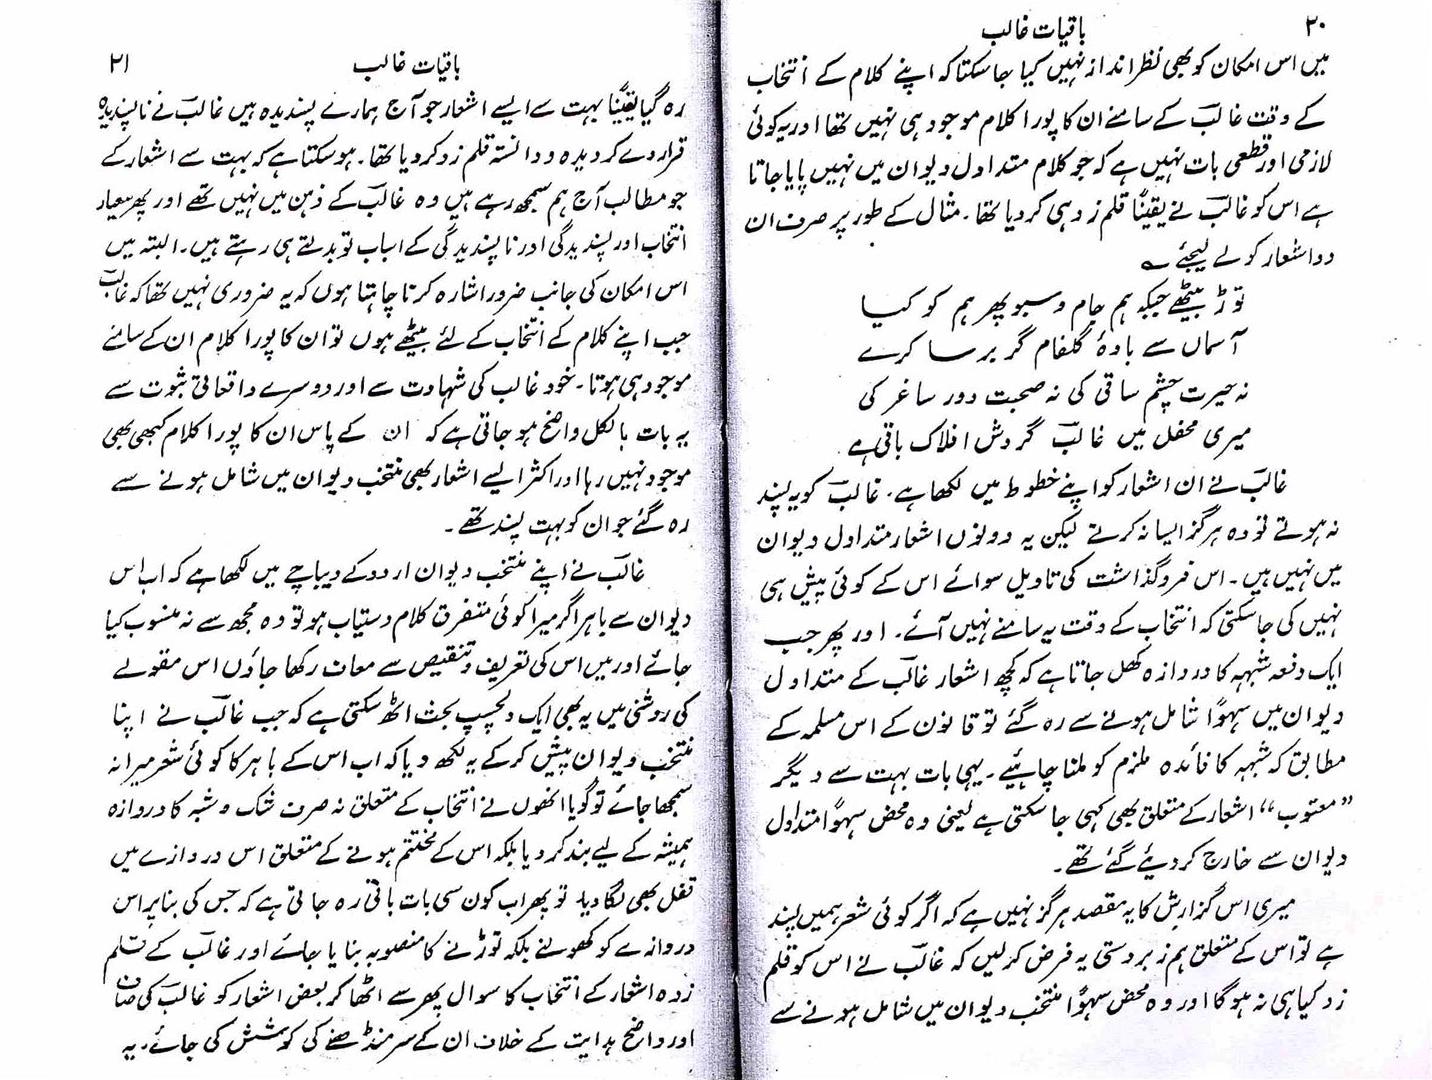 ۲۰
باقیات غالب
میں اس امکان کو بھی نظر انداز نہیں کیا جا سکتا کہ اپنے کلام کے انتخاب
کے وقت غالبؔ کے سامنے ان کا پورا کلام موجود ہی نہیں تھا اور یہ کوئی
لازمی اور قطعی بات نہیں ہے کہ جو کلام متداول دیوان میں نہیں پایا جاتا
ہے اس کو غالبؔ نے یقیناً قلم زد ہی کر دیا تھا۔ مثال کے طور پر صرف ان
دو اشعار کو لے لیجئے ؎
توڑ بیٹھے جبکہ ہم جام و سبو پھر ہم کو کیا
آسماں سے بادۂ گلفام گر برسا کرے
نہ حیرت چشم ساقی کی نہ صحبت دور ساغر کی
میری محفل میں غالبؔ گردش افلاک باقی ہے
غالبؔ نے ان اشعار کو اپنے خطوط میں لکھا ہے۔ غالبؔ کو یہ پسند
نہ ہوتے تو وہ ہرگز ایسا نہ کرتے لیکن یہ دونوں اشعار متداول دیوان
میں نہیں ہیں۔ اس فروگذاشت کی تاویل سوائے اس کے کوئی پیش ہی
نہیں کی جا سکتی کہ انتخاب کے وقت یہ سامنے نہیں آئے۔ اور پھر جب
ایک دفعہ شبہہ کا دروازہ کھل جاتا ہے کہ کچھ اشعار غالبؔ کے متداول
دیوان میں سہواً شامل ہونے سے رہ گئے تو قانون کے اس مسلمہ کے
مطابق کہ شبہہ کا فائدہ ملزم کو ملنا چاہئیے۔ یہی بات بہت سے دیگر
”معتوب“ اشعار کے متعلق بھی کہی جا سکتی ہے یعنی وہ محض سہواً متداول
دیوان سے خارج کر دیئے گئے تھے۔
میری اس گزارش کا یہ مقصد ہرگز نہیں ہے کہ اگر کوئی شعر ہمیں پسند
ہے تو اس کے متعلق ہم زبردستی یہ فرض کر لیں کہ غالبؔ نے اس کو قلم
زد کیا ہی نہ ہوگا اور وہ محض سہواً منتخب دیوان میں شامل ہونے سے
۲۱
باقیات غالب
رہ گیا یقیناً بہت سے ایسے اشعار جو آج ہمارے پسندیدہ ہیں غالبؔ نے ناپسندیدہ
قرار دے کر دیدہ و دانستہ قلم زد کر دیا تھا۔ ہو سکتا ہے کہ بہت سے اشعار کے
جو مطالب آج ہم سمجھ رہے ہیں وہ غالبؔ کے ذہن میں نہیں تھے اور پھر معیار
انتخاب اور پسندیدگی اور ناپسندیدگی کے اسباب تو بدلتے ہی رہتے ہیں۔ البتہ میں
اس امکان کی جانب ضرور اشارہ کرنا چاہتا ہوں کہ یہ ضروری نہیں تھا کہ غالبؔ
جب اپنے کلام کے انتخاب کے لئے بیٹھے ہوں تو ان کا پورا کلام ان کے سامنے
موجود ہی ہوتا۔ خود غالب کی شہادت سے اور دوسرے واقعاتی ثبوت سے
یہ بات بالکل واضح ہو جاتی ہے کہ ان کے پاس ان کا پورا کلام کبھی بھی
موجود نہیں رہا اور اکثر ایسے اشعار بھی منتخب دیوان میں شامل ہونے سے
رہ گئے جو ان کو بہت پسند تھے۔
غالبؔ نے اپنے منتخب دیوان اردو کے دیباچے میں لکھا ہے کہ اب اس
دیوان سے باہر اگر میرا کوئی متفرق کلام دستیاب ہو تو وہ مجھ سے نہ منسوب کیا
جائے اور میں اس کی تعریف و تنقیص سے معاف رکھا جاؤں اس مقولے
کی روشنی میں یہ بھی ایک دلچسپ بحث اٹھ سکتی ہے کہ جب غالبؔ نے اپنا
منتخب دیوان پیش کر کے یہ لکھ دیا کہ اب اس کے باہر کا کوئی شعر میرا نہ
سمجھا جائے تو گویا انھوں نے انتخاب کے متعلق نہ صرف شک و شبہ کا دروازہ
ہمیشہ کے لیے بند کر دیا بلکہ اس کے مختتم ہونے کے متعلق اس دروازے میں
قفل بھی لگا دیا۔ تو پھر اب کون سی بات باقی رہ جاتی ہے کہ جس کی بنا پر اس
دروازے کو کھولنے بلکہ توڑنے کا منصوبہ بنایا جائے اور غالبؔ کے قلم
زدہ اشعار کے انتخاب کا سوال پھر سے اٹھا کر بعض اشعار کو غالبؔ کی صاف
اور واضح ہدایت کے خلاف ان کے سر منڈھنے کی کوشش کی جائے۔ یہ